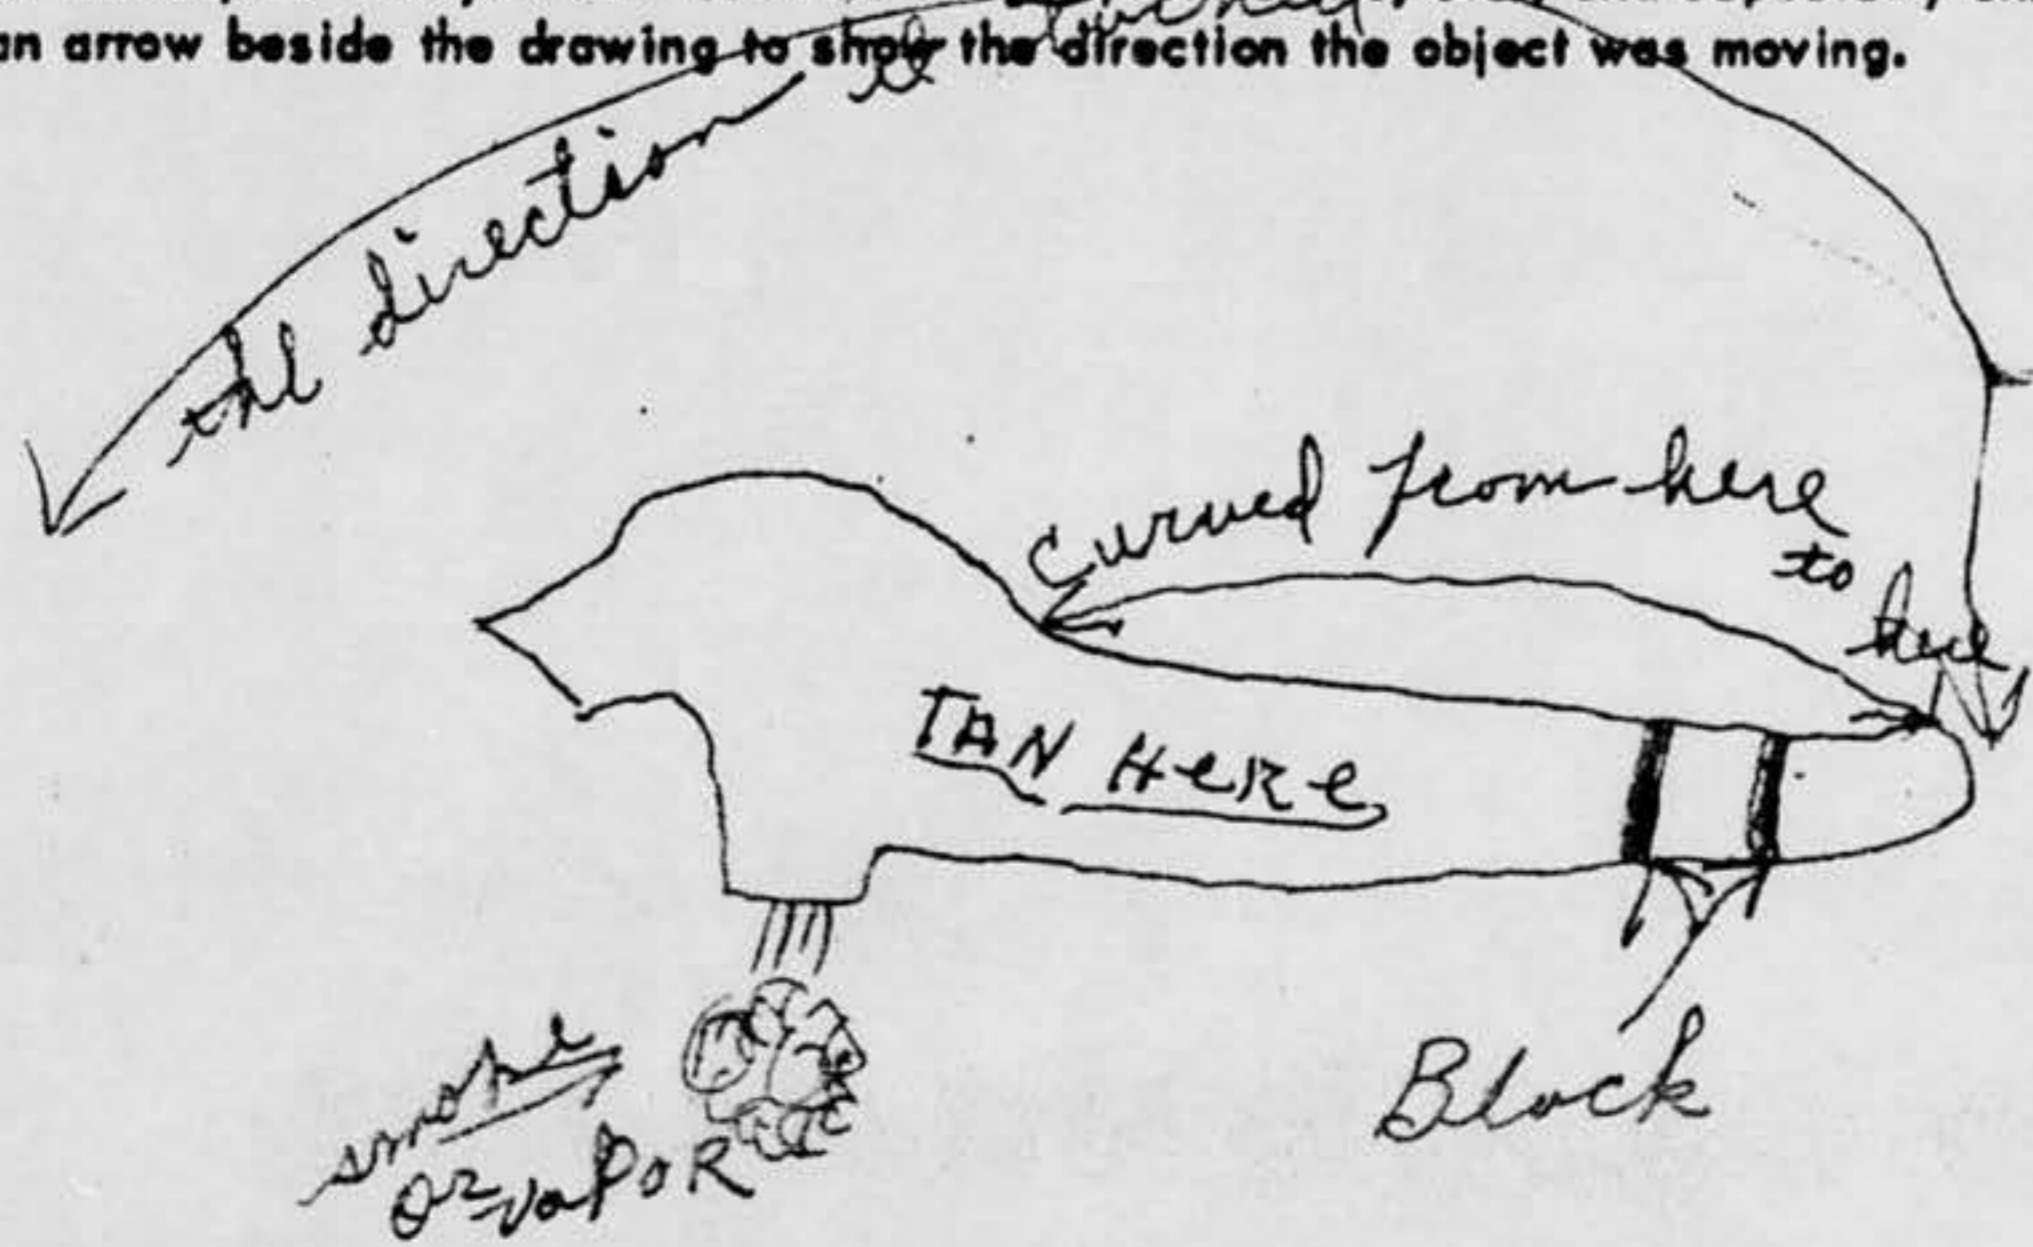 an arrow beside the drawing to show the direction the object was moving.
the direction it
Curved from here
to
here
TAN HeRe
smoke
or vapoR
Black